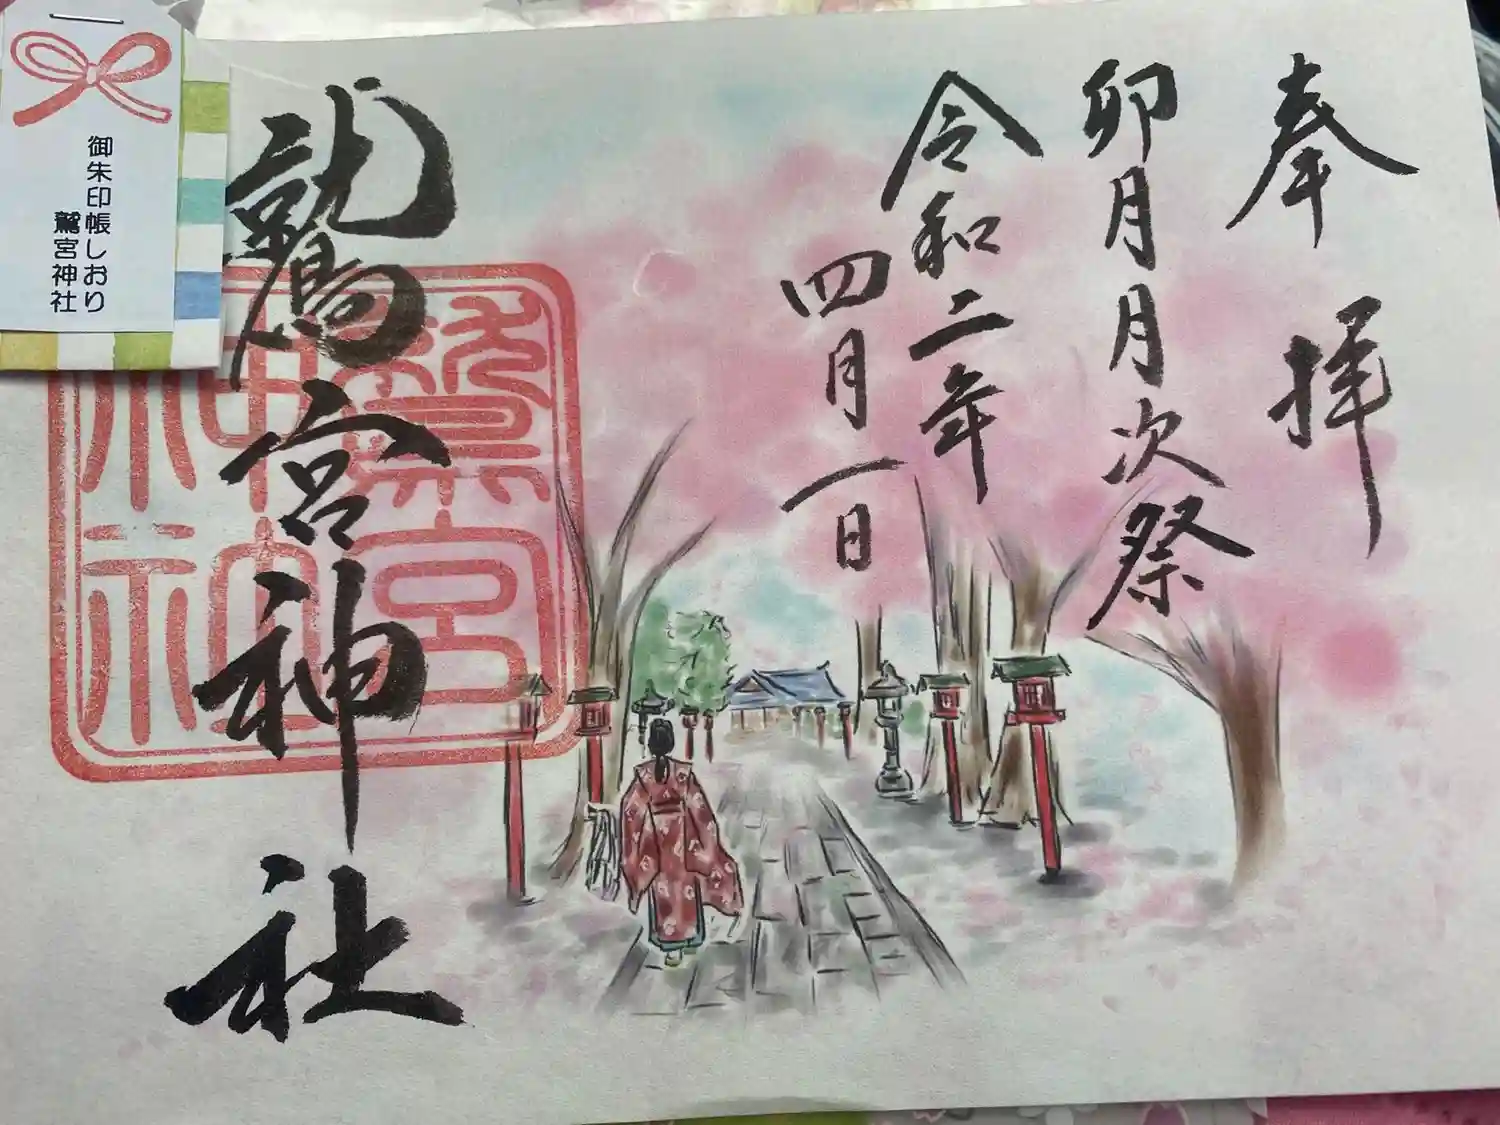 奉拝
卯月月次祭
令和二年
四月一日
鷲宮神社
鷲宮
神社
御朱印帳しおり
鷲宮神社